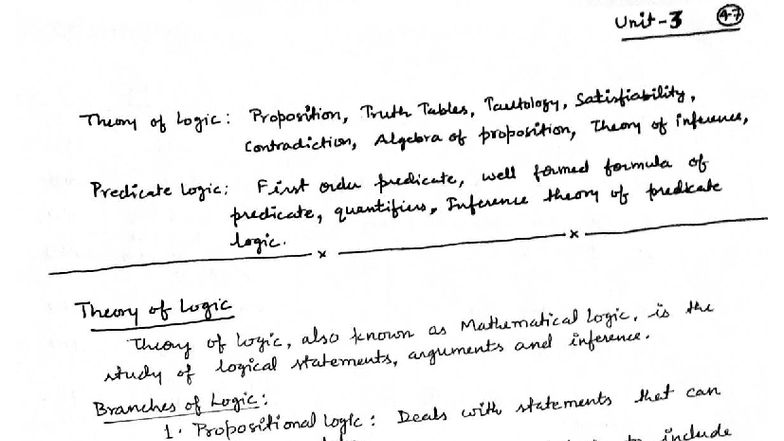 Unit-3 47
Theory of Logic: Proposition, Truth Tables, Tautology, Satisfiability,
Contradiction, Algebra of proposition, Theory of inference,
Predicate Logic: First order predicate, well formed formula of
predicate, quantifiers, Inference theory of predicate
logic.
Theory of Logic
Theory of logic, also known as Mathematical Logic, is the
study of logical statements, arguments and inference.
Branches of Logic:
1. Propositional Logic: Deals with statements that can
include